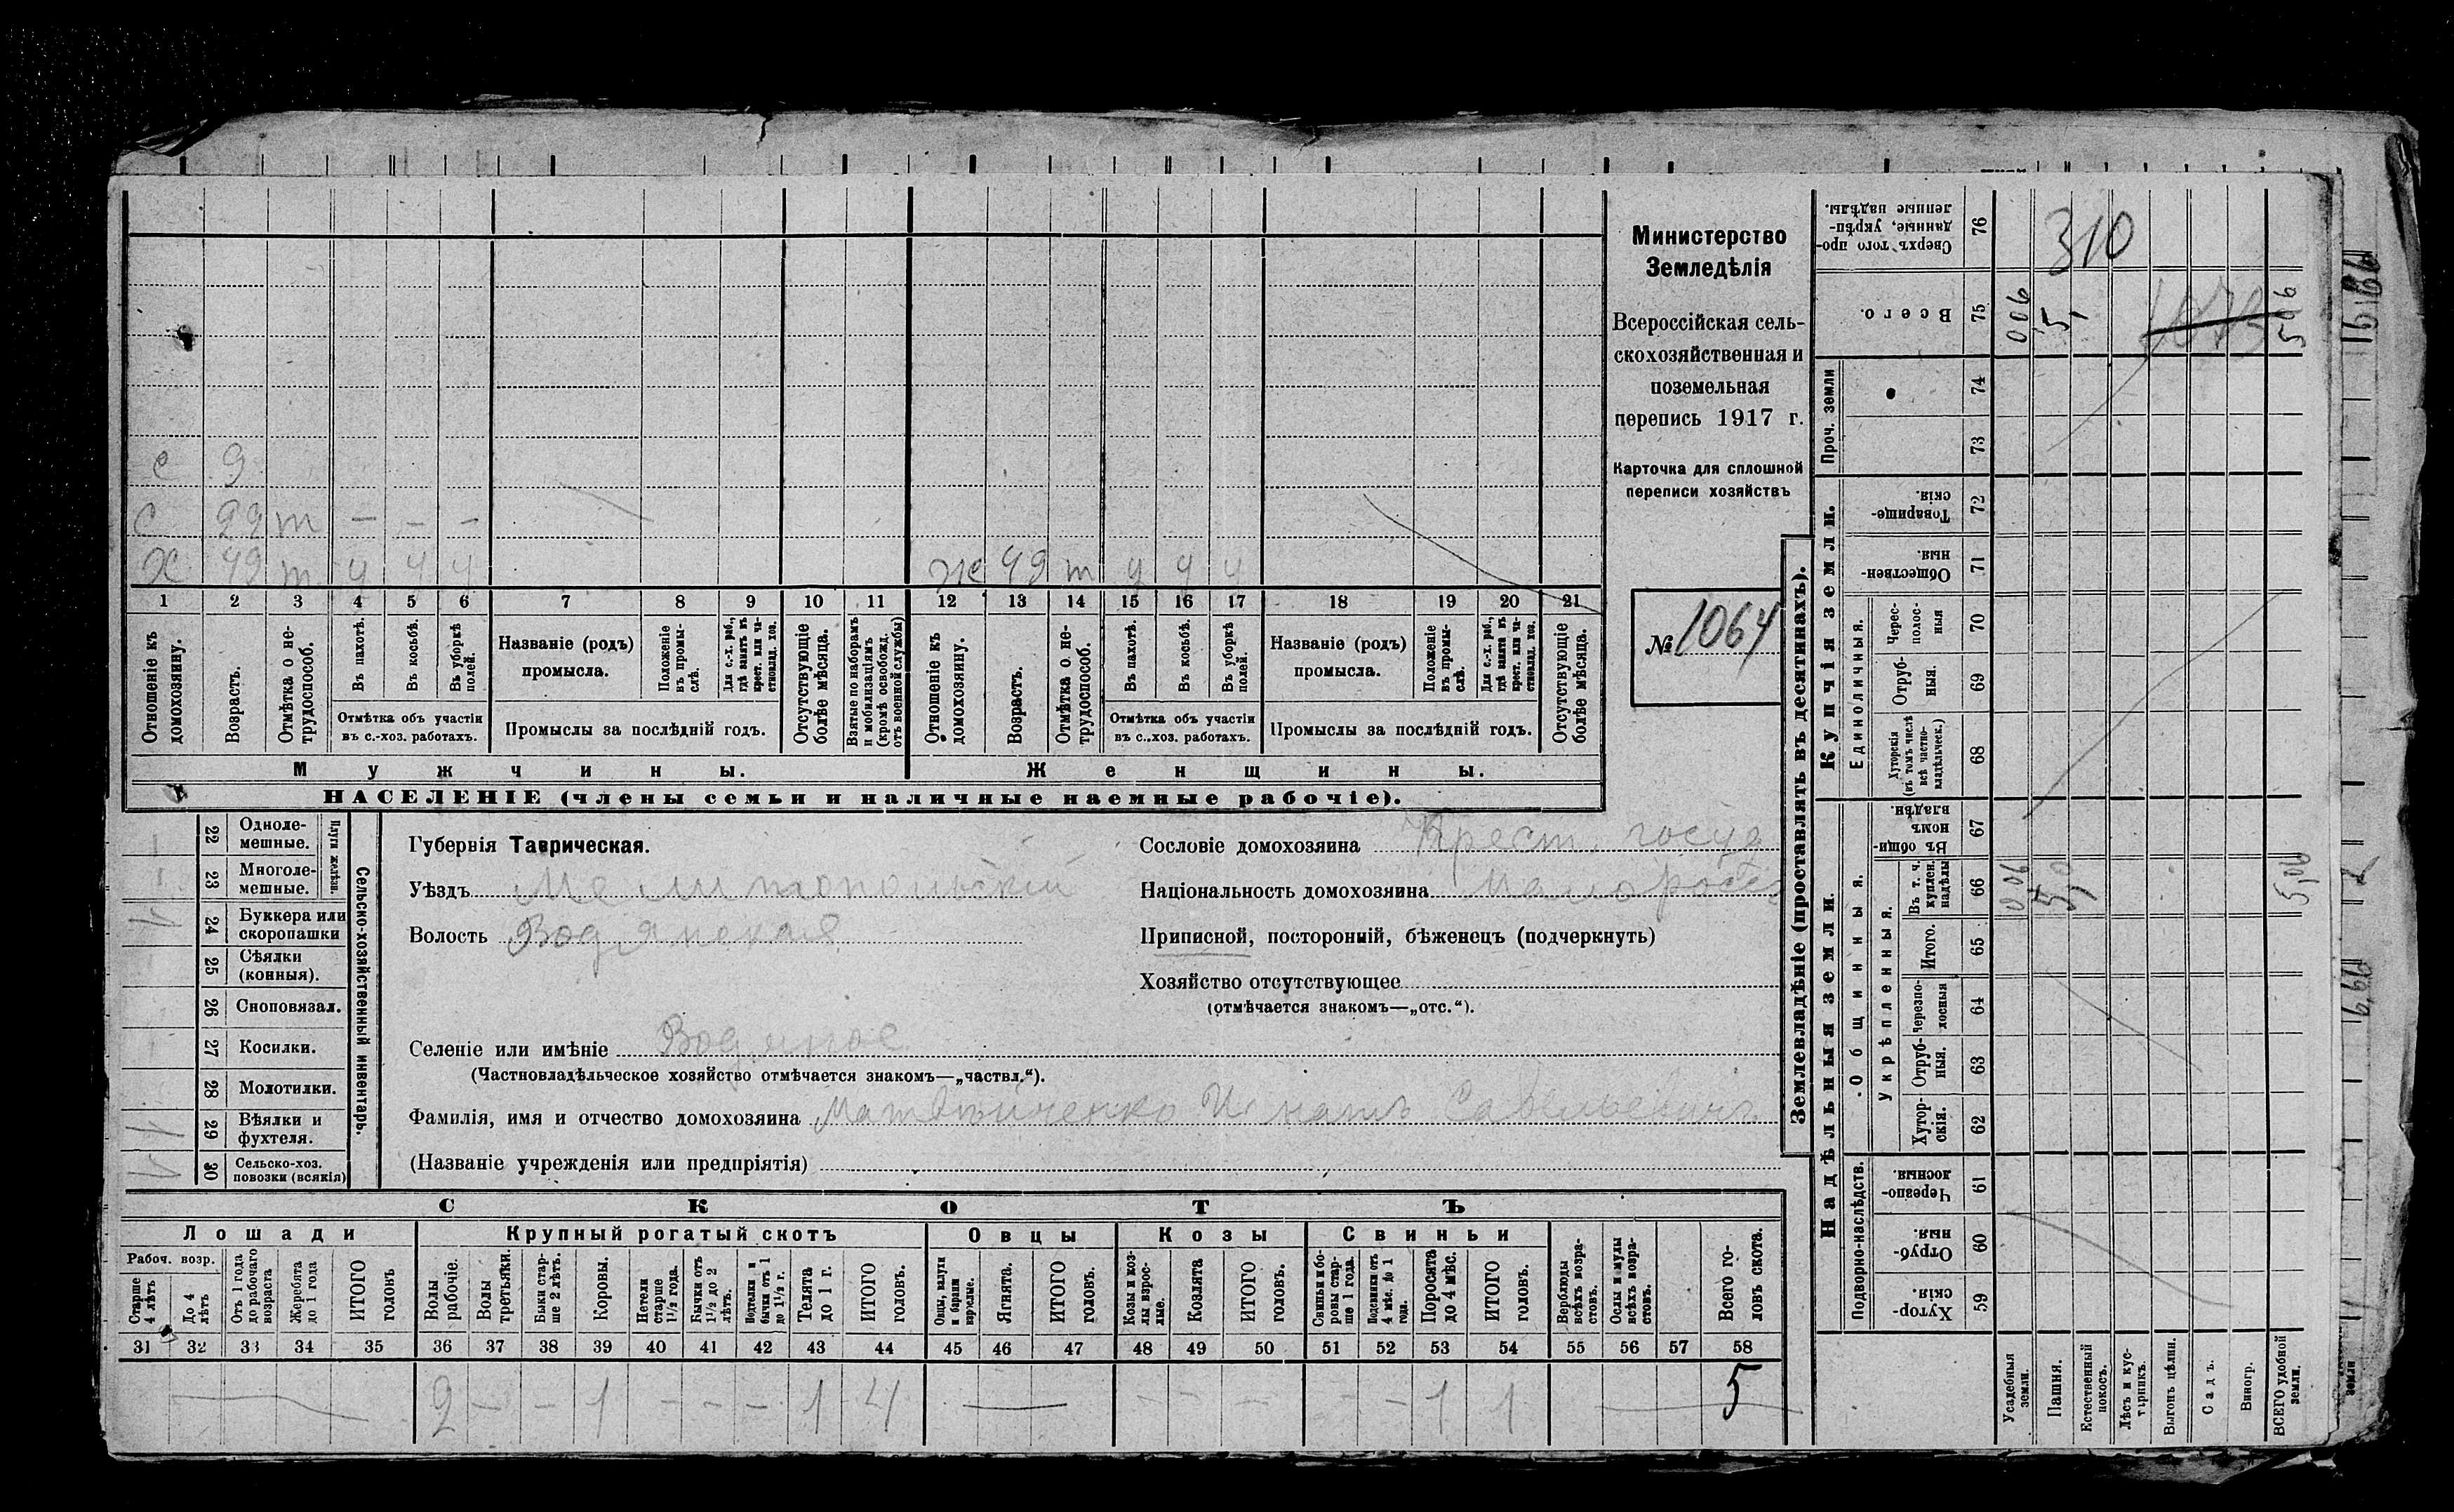 е 9
с 22 т — — —
Х 49 т ч ч ч Ж 49 т ч ч ч
1 2 3 4 5 6 7 8 9 10 11 12 13 14 15 16 17 18 19 20 21
Отношеніе къ домохозяину.
Возрастъ.
Отмѣтка о не-трудоспособ.
Въ пахотѣ.
Въ косьбѣ.
Въ уборкѣ полей.
Отмѣтка объ участіи
въ с.-хоз. работахъ.
Названіе (родъ)
промысла.
Положеніе въ промы-слѣ.
Для с.-х. раб., гдѣ занятъ въ крест. или ча-стновлад. хоз.
Промыслы за послѣдній годъ.
Отсутствующіе болѣе мѣсяца.
Взятые по наборамъ и мобилизаціямъ (кромѣ освобожд. отъ военной службы)
Отношеніе къ домохозяину.
Возрастъ.
Отмѣтка о не-трудоспособ.
Въ пахотѣ.
Въ косьбѣ.
Въ уборкѣ полей.
Отмѣтка объ участіи
въ с.-хоз. работахъ.
Названіе (родъ)
промысла.
Положеніе въ промы-слѣ.
Для с.-х. раб., гдѣ занята въ крест. или ча-стновлад. хоз.
Промыслы за послѣдній годъ.
Отсутствующіе болѣе мѣсяца.
Мужчины.
Женщины.
НАСЕЛЕНІЕ (члены семьи и наличные наемные рабочіе).
Министерство
Земледѣлія
Всероссійская сель-
скохозяйственная и
поземельная
перепись 1917 г.
Карточка для сплошной
переписи хозяйствъ
№ 1064
22 Одноле-мешные.
23 Многоле-мешные.
Плуги желѣзн.
24 Буккера или скоропашки 1
25 Сѣялки (конныя).
26 Сноповязал.
27 Косилки.
28 Молотилки.
29 Вѣялки и фухтеля. 1
30 Сельско-хоз. повозки (всякія) 1
Сельско-хозяйственный инвентарь.
Губернія Таврическая.
Уѣздъ Мелитопольскій
Волость Водянская
Сословіе домохозяина Крест. госуд
Національность домохозяина малоросс
Приписной, посторонній, бѣженецъ (подчеркнуть)
Хозяйство отсутствующее
(отмѣчается знакомъ—„отс.“).
Селеніе или имѣніе Водяное
(Частновладѣльческое хозяйство отмѣчается знакомъ—„частвл.“).
Фамилія, имя и отчество домохозяина Матвѣйченко Игнатъ Савельевичъ
(Названіе учрежденія или предпріятія)
СКОТЪ
Лошади
Крупный рогатый скотъ
Овцы
Козы
Свиньи
Рабоч. возр.
Старше 4 лѣтъ
До 4 лѣтъ
Отъ 1 года до рабочаго возраста
Жеребята до 1 года
ИТОГО головъ
Волы рабочіе.
Волы третьяки.
Быки стар-ше 2 лѣтъ.
Коровы.
Нетели старше 1½ года.
Бычки отъ 1½ до 2 лѣтъ.
Нетели и бычки отъ 1 до 1½ г.
Телята до 1 г.
ИТОГО головъ.
Овцы, валухи и бараны взрослые.
Ягнята.
ИТОГО головъ.
Козы и коз-лы взрос-лые.
Козлята
ИТОГО головъ.
Свиньи и бо-ровы стар-ше 1 года.
Подсвинки отъ 4 мѣс. до 1 года.
Поросята до 4 мѣс.
ИТОГО головъ.
Верблюды всѣхъ возра-стовъ.
Ослы и мулы всѣхъ возра-стовъ.
Всего го-ловъ скота.
31 32 33 34 35 36 37 38 39 40 41 42 43 44 45 46 47 48 49 50 51 52 53 54 55 56 57 58
2 — — 1 — — — 1 4 — — — — — — 1 1 5
Землевладѣніе (проставлять въ десятинахъ).
Надѣльныя земли.
Купчія земли.
Проч. земли
Подворно-наслѣдств.
Общинныя.
Укрѣпленныя.
Единоличныя.
Сверхъ того про-данные, укрѣп-ленные надѣлы. 76 310
Всего. 75 006 5, 1073 506
74
73
Товарище-скія. 72
Обществен-ныя. 71
Черес-полос-ныя 70
Отруб-ныя. 69
Хуторскія (въ томъ числѣ всѣ частно-владѣльческ.) 68
Въ общин-номъ владѣн. 67
Въ т. ч. куплен. надѣлы 66 0,06 5,0 5,06
Итого. 65
Черезпо-лосныя 64
Отруб-ныя. 63
Хутор-скія. 62
Черезпо-лосныя 61
Отруб-ныя. 60
Хутор-скія. 59
Усадебныя земли.
Пашня.
Естественный покосъ.
Лѣсъ и кус-тарникъ.
Выгонъ цѣлин.
Садъ.
Виногр.
ВСЕГО удобной земли.
земли